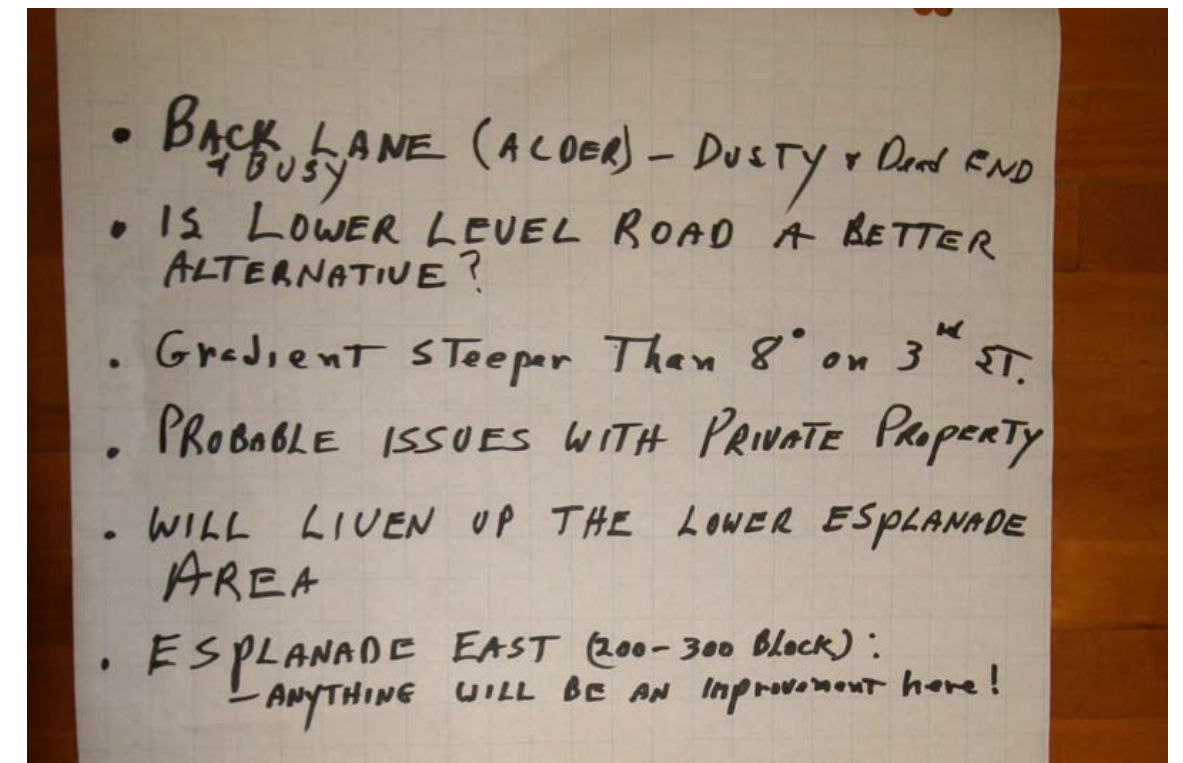 • BACK LANE (ALDER) – DUSTY & Dead END
& BUSY
• IS LOWER LEVEL ROAD A BETTER
ALTERNATIVE?
• Gradient STeeper Than 8° on 3rd ST.
• PROBABLE ISSUES WITH PRIVATE PROPERTY
• WILL LIVEN UP THE LOWER ESPLANADE
AREA
• ESPLANADE EAST (200-300 Block):
– ANYTHING WILL BE AN Improvement here!